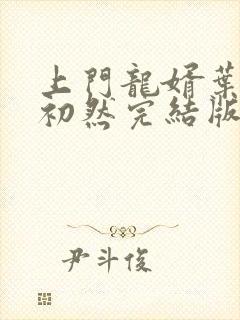 上門龍婿葉
初然完結版
尹斗俊